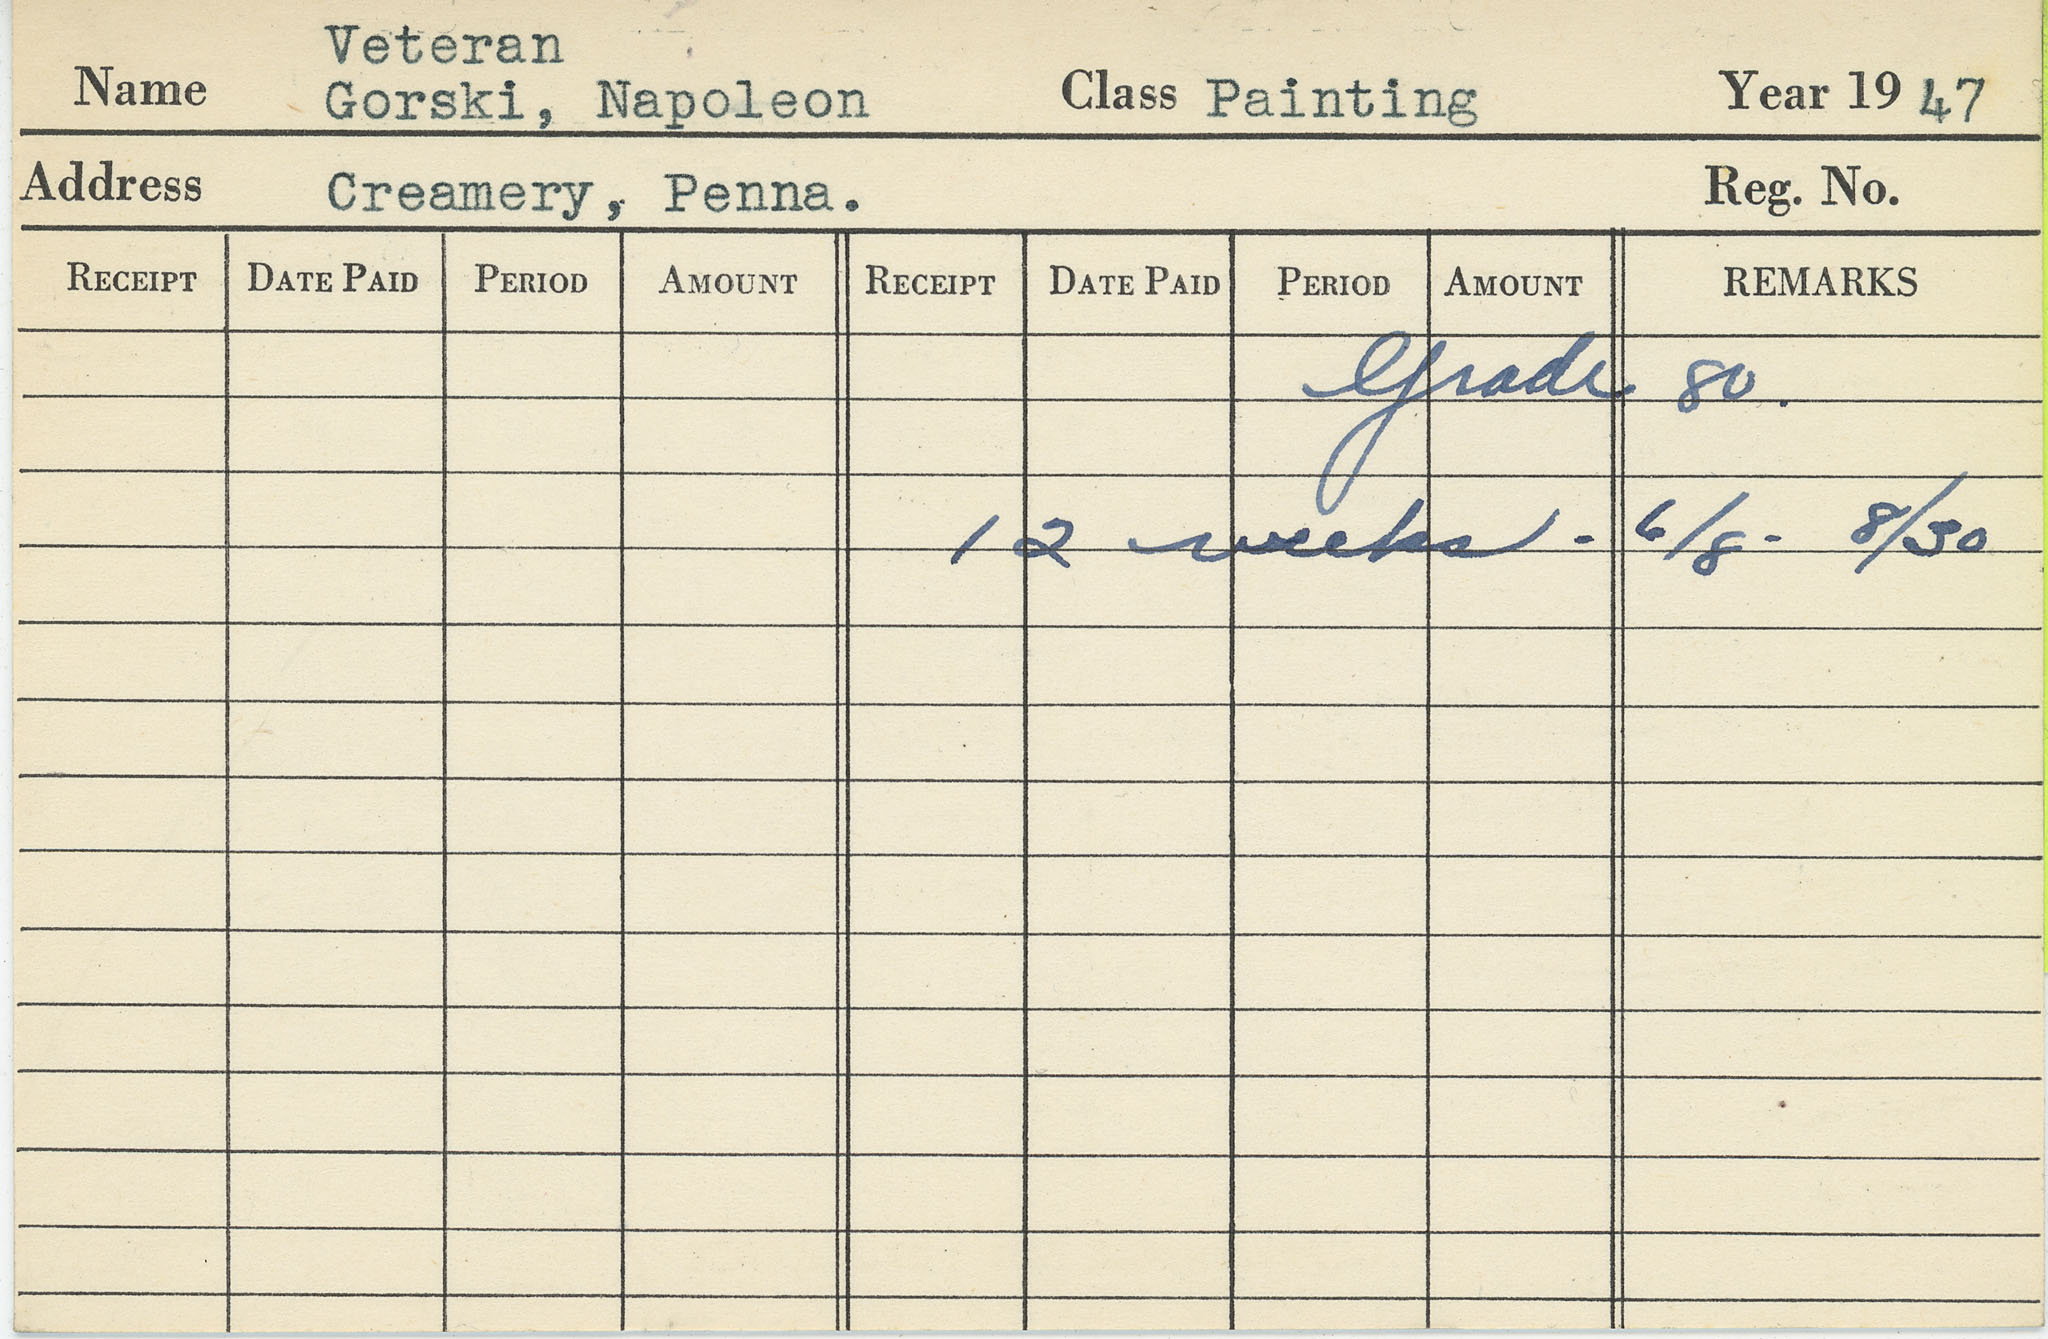 Veteran
Name Gorski, Napoleon Class Painting Year 19 47
Address Creamery, Penna. Reg. No.
RECEIPT DATE PAID PERIOD AMOUNT RECEIPT DATE PAID PERIOD AMOUNT REMARKS
Grade 80.
12 weeks - 6/8 - 8/30